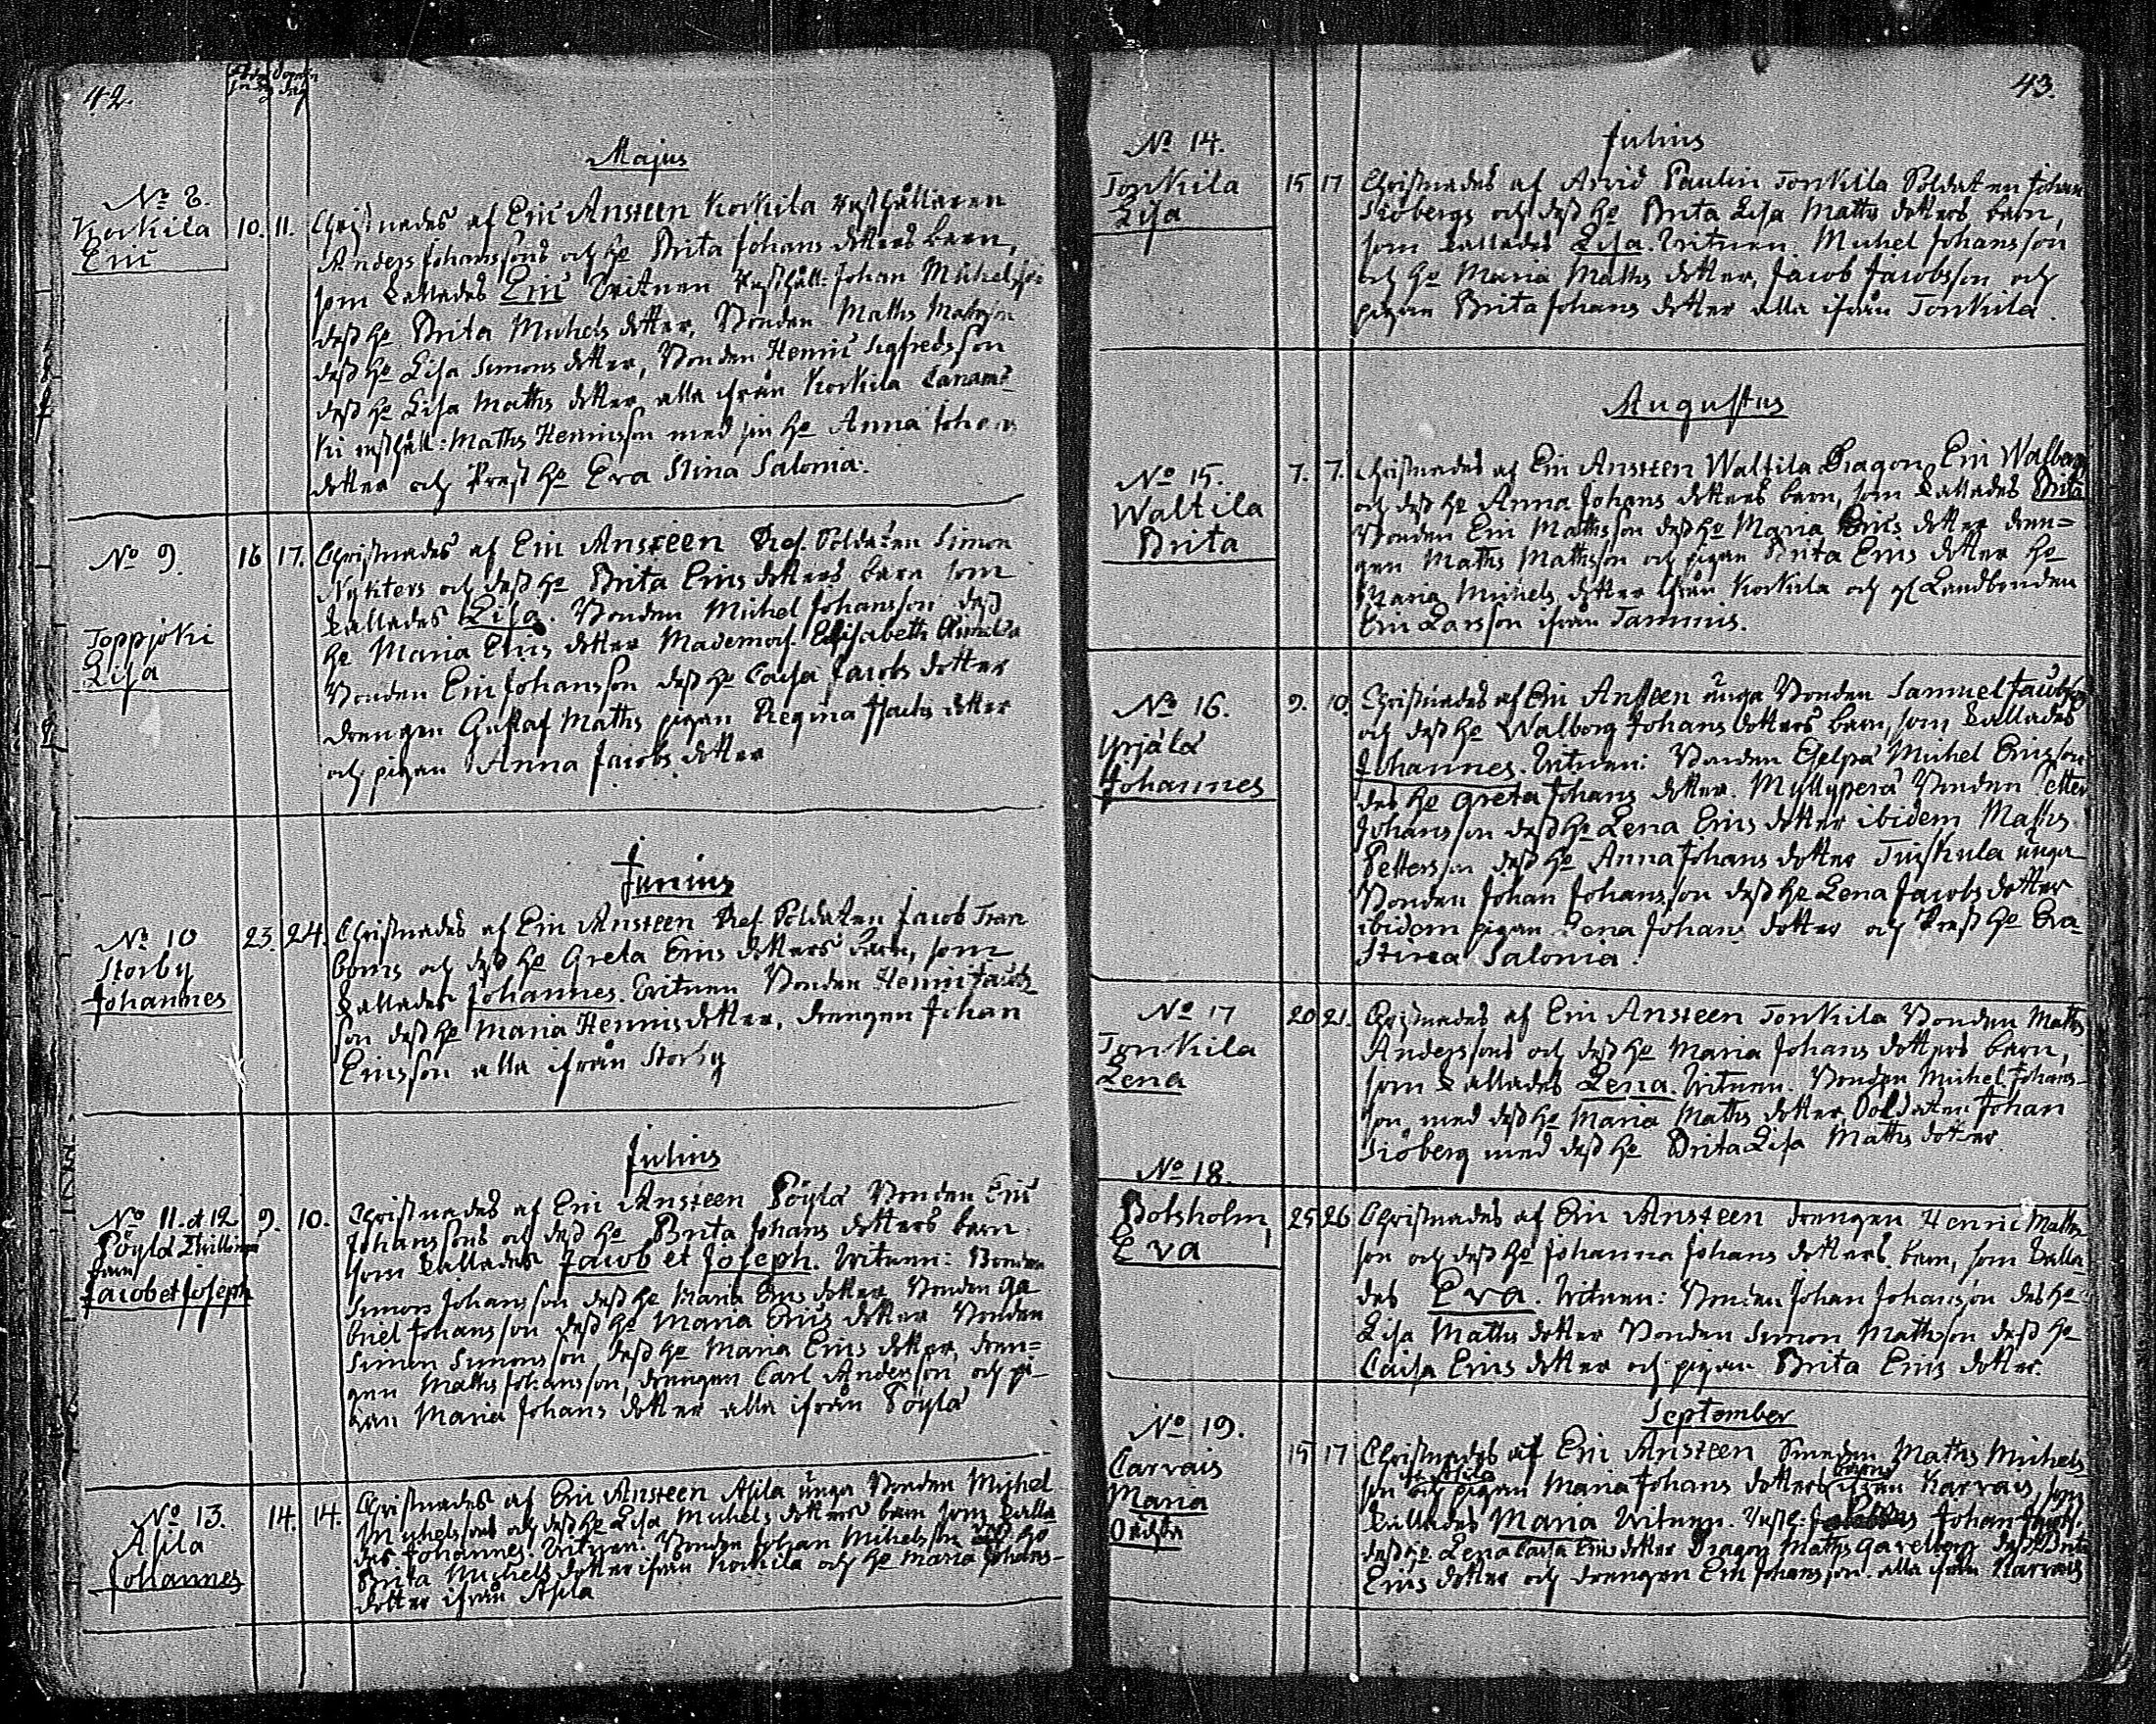 42.
Majus
No 8.
Korkila
Eric
10. 11.
Christnades af Eric Ansteen Korkila rusthållaren
Anders Johanssons och H:o Brita Johans dotters barn,
som kallades Eric Witnen rusthåll: Johan Michelsson
dess H:o Brita Michels dotter, Bonden Matths Matsson
dess H:o Lisa Simons dotter, Bonden Henric Sigfredsson
dess H:o Lisa Matths dotter alla ifrån Korkila Caname-
ki rusthåll: Matths Henricsson med sin H:o Anna Johans
dotter och Prest H:o Eva Stina Salonia.
No 9.
Toppjoki
Lisa
16 17.
Christnades af Eric Ansteen Ref. Soldaten Simon
Nykters och dess H:o Brita Erics dotters barn som
kallades Lisa. Bonden Michel Johansson dess
H:o Maria Erics dotter Mademois. Elisabeth
Bonden Eric Johansson dess H:o Caisa Jacobs dotter
drengen Gustaf Matths pigan Regina Isachs dotter
och pigan Anna Jacobs dotter
Junius
No 10
Storby
Johannes
23. 24.
Christnades af Eric Ansteen Ref. Soldaten Jacob Tran
boms och dess H:o Greta Erics dotters barn, som
kallades Johannes. Witnen Bonden Henric Jacobs
son dess H:o Maria Henrics dotter, drengen Johan
Ericsson alla ifrån Storby
Julius
No 11. et 12
Pöylä Twillinga
barn
Jacob et Joseph
9. 10.
Christnades af Eric Ansteen Pöylä Bonden Eric
Johanssons och dess H:o Brita Johans dotters barn
som kallades Jacob et Joseph. Witnen: Bonden
Simon Johansson dess H:o Maria Erics dotter Bonden Ga
briel Johansson dess H:o Maria Erics dotter Bonden
Simon Simonsson dess H:o Maria Erics dotter, dren=
gen Matths Johansson, drengen Carl Andersson och pi-
gan Maria Johans dotter alla ifrån Pöylä
No 13.
Asila
Johannes
14. 14.
Christnades af Eric Ansteen Asila unga Bonden Michel
Michelssons och dess H:o Lisa Michels dotters barn som kalla
des Johannes. Witnen. Bonden Johan Michelsson dess H:o
Brita Michels dotter ifrån Korkila och H:o Maria Johans-
dotter ifrån Asila
43.
Julius
No 14.
Tonkila
Lisa
15 17
Christnades af Arvid Paulin Tonkila Soldaten Johan
Siöbergs och dess H:o Brita Lisa Matths dotters barn,
som kallades Lisa. Witnen Michel Johansson
och H:o Maria Matths dotter, Jacob Jacobsson och
pigan Brita Johans dotter alla ifrån Tonkila.
Augustus
No 15.
Waltila
Brita
7. 7.
Christnades af Eric Ansteen Waltila Dragon Eric Walberg
och dess H:o Anna Johans dotters barn, som kallades Brita
Bonden Eric Mathsson dess H:o Maria Erics dotter dren=
gen Maths Mathsson och pigan Brita Erics dotter H:o
Maria Michels dotter ifrån Korkila och gl Landbonden
Eric Larsson ifrån Tammis.
No 16.
Yrjälä
Johannes
9. 10.
Christnades af Eric Ansteen unga Bonden Samuel Jacobs
och dess H:o Walborg Johans dotters barn, som kallades
Johannes. Witnen: Bonden Michel Ericsson
des H:o Greta Johans dotter. Myllyperä Bonden Petter
Johansson dess H:o Lena Erics dotter ibidem Maths
Pettersson dess H:o Anna Johans dotter Tuiskula unga
Bonden Johan Johansson dess H:o Lena Jacobs dotter
ibidem pigan Lena Johans dotter och Prest H:o Eva
Stina Salonia.
No 17
Tonkila
Lena
20 21.
Christnades af Eric Ansteen Tonkila Bonden Maths
Anderssons och dess H:o Maria Johans dotters barn,
som kallades Lena. Witnen. Bonden Michel Johans-
son, med dess H:o Maria Maths dotter Soldaten Johan
Siöberg med dess H:o Brita Lisa Maths dotter
No 18.
Botsholm
Eva
25 26
Christnades af Eric Ansteen drengen Henric Maths
son och dess H:o Johanna Johans dotters barn, som kalla
des Eva. Witnen: Bonden Johan Johansson des H:o
Lisa Maths dotter Bonden Simon Mathsson dess H:o
Caisa Erics dotter och pigan Brita Erics dotter.
September
No 19.
Carvais
Maria
Oächta
15 17
Christnades af Eric Ansteen Smeden Maths Michels
son och pigan Maria Johans dotters barn Karvais, som
kallades Maria Witnen. Johan
dess H:o Lena Caisa Erics dotter Dragon Maths Gavelberg dess Brita
Erics dotter och drengen Eric Johansson alla ifrån Karvais